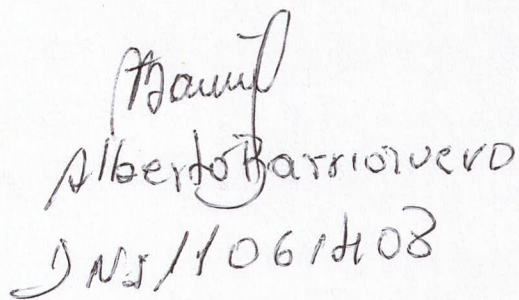 Alberto Barrionuevo
DNI 11061408